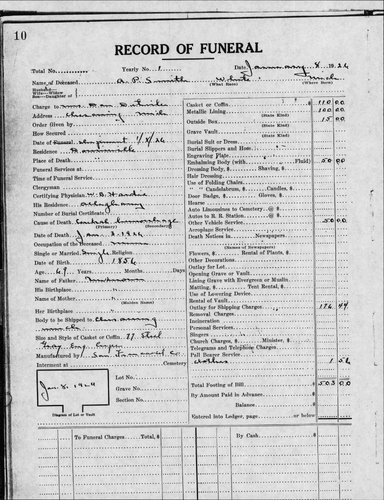 10
RECORD OF FUNERAL
Total No. Yearly No. 1 Date January 8 1926
Name of Deceased A. P. Smith White
(What Race) (Where Born)
Husband
Wife—Widow of
Son—Daughter
Charge to
Address Mich
Order Given by
How Secured
Date of Funeral Shipment 1/8/26
Residence
Place of Death
Funeral Services at
Time of Funeral Service
Clergyman
Certifying Physician W. B. Hardie
His Residence
Number of Burial Certificate
Cause of Death Cerebral hemorrhage
(Primary) (Secondary)
Date of Death Jan
Occupation of the Deceased
Single or Married Single Religion
Date of Birth 1856
Age 69 Years Months Days
Name of Father Unknown
His Birthplace
Name of Mother
(Maiden Name)
Her Birthplace
Body to be Shipped to
Mich
Size and Style of Casket or Coffin
Manufactured by
Interment at Cemetery
Lot No.
Grave No.
Section No.
Diagram of Lot or Vault
Casket or Coffin $ 110 00
Metallic Lining 100 00
(State Kind)
Outside Box 15 00
(State Kind)
Grave Vault
(State Kind)
Burial Suit or Dress
Burial Slippers and Hose
Engraving Plate
Embalming Body (with Fluid) 50 00
Dressing Body, $ Shaving, $
Hair Dressing
Use of Folding Chairs
" " Candelabrum, $ Candles, $
Door Badge, $ Gloves, $
Hearse
Auto Limousines to Cemetery @ $
Autos to R. R. Station @ $
Other Vehicle Service 50 00
Aeroplane Service
Death Notices in Newspapers
(Names of Newspapers)
Flowers, $ Rental of Plants, $
Other Decorations
Outlay for Lot
Opening Grave or Vault
Lining Grave with Evergreen or Muslin
Matting, $ Tent Rental, $
Use of Lowering Device
Rental of Vault
Outlay for Shipping Charges 176 44
Removal Charges
Incineration
Personal Services
Singers
Church Charges, $ Minister, $
Telegrams and Telephone Charges
Pall Bearer Service
Clothes 1 56
Total Footing of Bill $ 503 00
By Amount Paid in Advance $
Balance $
Entered into Ledger, page or below
To Funeral Charges Total, $ By Cash $